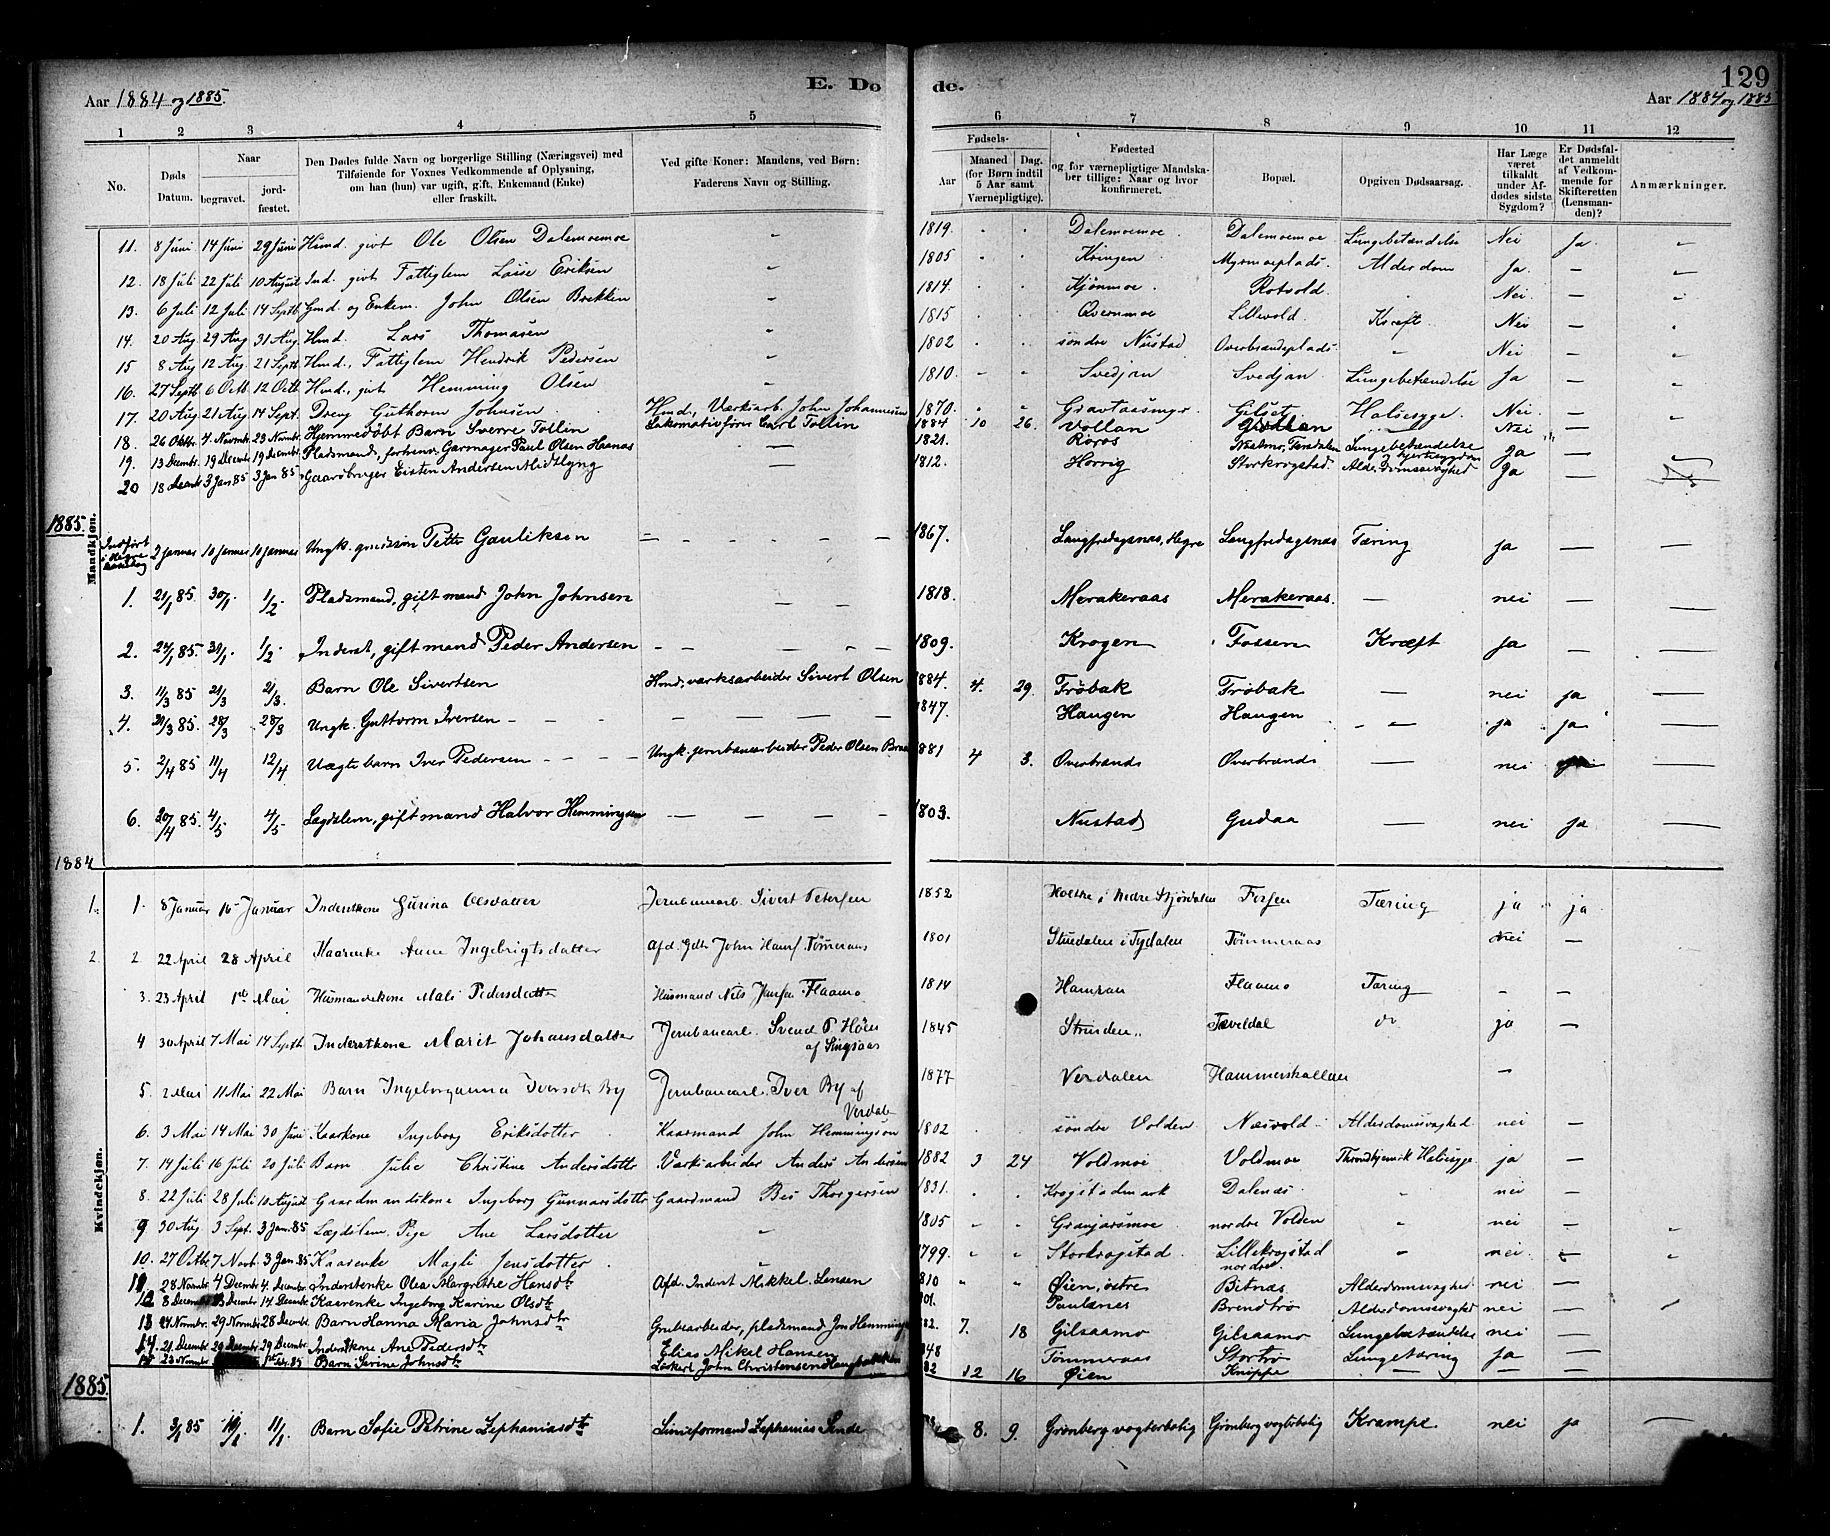 E. Døde.
129
Aar 1884 og 1885.
Aar 1884 og 1885
1 2 3 4 5 6 7 8 9 10 11 12
No.
Døds Datum.
Naar
begravet.
jordfæstet.
Den Dødes fulde Navn og borgerlige Stilling (Næringsvei) med
Tilføiende for Voxnes Vedkommende af Oplysning,
om han (hun) var ugift, gift, Enkemand (Enke)
eller fraskilt.
Ved gifte Koner: Mandens, ved Børn:
Faderens Navn og Stilling.
Fødsels-
Aar
Maaned Dag.
(for Børn indtil
5 Aar samt
Værnepligtige).
Fødested
og for værnepligtige Mandskaber tillige: Naar og hvor
konfirmeret.
Bopæl.
Opgiven Dødsaarsag.
Har Læge været tilkaldt under Afdødes sidste Sygdom?
Er Dødsfaldet anmeldt af Vedkommende for Skifteretten (Lensmanden)?
Anmærkninger.
Mandkjøn.
11. 8 Juni 14 Juni 29 Juni Husmd. givt Ole Olsen Dalemoemoe - 1819. Dalemoemoe. Dalemoemoe Lungebetændelse Nei Ja. -
12. 18 Juli 22 Juli 10 August Ind. givt Fattiglem Lasse Eriksen - 1805 Kringen Myrmoeplads. Alderdom Ja. - -
13. 6 Juli 12 Juli 14 Septb. Gmd. og Enkem. John Olsen Brekken - 1814. Kjønmoe Rotvold. Nei - -
14. 20 Aug 29 Aug 31 Aug. Hmd. Lars Thomasen - 1815 Overnmoe Lillevold. Kræft. Nei -
15 8 Aug 12 Aug. 21 Septb Hmd., Fattiglem Hendrik Pedersen - 1802 søndre Nustad Overbrandsplads. - Nei -
16. 27 Septb 6 Octb. 12 Octb Hmd., givt Hemming Olsen - 1810. Svedjan Svedjan Lungebetændelse Ja -
17. 20 Aug. 21 Aug. 14 Sept. Dreng Guthorm Johnsen Hmd., Værksarb. John Johannesen 1870. Gilset. Halssyge. Nei -
18. 26 Oktbr. 4 Novmbr. 23 Novmbr. Hjemmedøbt Barn Sverre Tollin Lokomotivfører Carl Tollin 1884 10 26. Vollan Vollan - Nei -
19. 13 Decembr. 19 Decembr 19 Decembr. Pladsmand, forhenv. Garmager Paul Olsen Haanas - 1821. Røros Lungebetændelse Ja -
20 18 Decmbr 3 Jan 85 3 Jan 85. Gaardbruger Eisten Andersen Midtlyng - 1812. Horrig Storkrogstad. Ja -
1885.
Indført i Hegre 2 Januar 10 Januar 10 Januar Ungk. Petter Gauliksen 1867. Langfredagsnæs, Hegre Langfredagsnæs Tæring ja - -
1. 21/1 85 30/1. 1/2. Pladsmand, gift mand John Johnsen - - 1818. Merakeraas Merakeraas. - nei - -
2. 24/1 85. 31/1 1/2. Inderst, gift mand Peder Andersen - - 1809. Krogen Fossen Kræft ja - -
3. 11/3 85 21/3 21/3. Barn Ole Sivertsen Hmd., værksarbeider Sivert Olsen 1884. 4. 29. Frøbak Frøbak - nei ja -
4. 20/3 85. 28/3 28/3 Ungk. Guttorm Iversen - - - 1847. Haugen Haugen - ja ja -
5. 2/4 85 11/4 12/4 Uægte barn Iver Pedersen - - - Ungk. jernbanearbeider Peder Olsen 1881 4 3. Overbrands Overbrands - nei ja -
6. 20/4 85. 4/5. 4/5. Lægdslem, gift mand Halvor Hemmingsen - - 1803. Nustad Gudaa - nei ja -
1884
Kvindekjøn.
1. 1. 8 Januar 16 Januar Inderstkone Gurina Olsdatter Jernbanearb. Sivert Petersen 1852 Nedre Stjørdalen Forsen Tæring ja ja
2. 2. 22 April 28 April Kaarenke Anne Ingebrigtsdatter Afd. Gdb. John Tømeraas 1801 Stuedalen i Tydalen Tømmeraas nei -
3. 23 April 1ste Mai Husmandskone Mali Pedersdatter Husmand Nils Flaamo 1814 Flaamo Tæring - -
4 30 April 7 Mai 14 Septb. Inderstkone Marit Johansdatter Jernbanearb. Svend P Høen af Singsaas 1845 Strinden. Tæveldal do ja -
5. 2 Mai 11 Mai 22 Mai Barn Ingeborganna Iversdt By Jernbanearb. Iver By af Verdalen 1877 Verdalen Hammerskallen -
6. 3 Mai 14 Mai 30 Juni Kaarkone Ingeborg Eriksdotter Kaarmand John Hemmingson 1802 søndre Volden Næsvold Alderdomssvaghed nei -
7. 14 Juli 16 Juli 20 Juli Barn Julie Christine Andersdotter Værksarbeider Anders Andersen 1882 3 24 Voldmoe Voldmoe Halssyge ja -
8. 22 Juli 28 Juli 10 August Gaardmandskone Ingeborg Gunnarsdotter Gaardmand Thorgersen 1831. Krogstadmark Dalenæs. nei -
9 30 Aug 3 Sept. 3 Jan. 85 Lægdslem Pige Ane Larsdotter - 1805 Granjarsmoe nordre Volden - nei - -
10. 27 Octbr 7 Novb. 3 Jan. 85 Kaarenke Magli Jensdotter - 1799. Storkrogstad. Lillekrogstad nordre - nei - -
11 28 Novmbr. 4 Decembr 4. Decembr Inderstenke Olea Margrethe Hansdtr Afd. Inderst Mikkel Lensen 1810 Øien, østre Bitnæs Alderdomssvaghed nei -
12 8 Decembr 14 Decmbr. Kaarenke Ingeborg Karine Olsdtr Paulænes Brendtrø Alderdomssvaghed nei -
13 24 Novmbr. 29 Novmbr 28 Decmbr. Barn Hanna Maria Johnsdtr Grubearbeider, pladsmand Jon 7. 18 Gilsaamo Gilsaamo Lungebetændelse nei -
14. 21 Decembr 29 Decmbr 29 Decembr. Inderstkone Ane Pedersdtr Elias Mikal Hansen Tømmeraas Stortrø Lungetæring ja -
15 23 Novmbr. Barn Serine Johnsdtr John Christensen 12 16 Øien Knippe - - -
1885.
1. 3/1 85 11/1 Barn Sofie Petrine Zephaniasdtr Linieformand Zephanias 8. 9. Grønberg vogterbolig Grønberg vogterbolig Krampe nei ja -